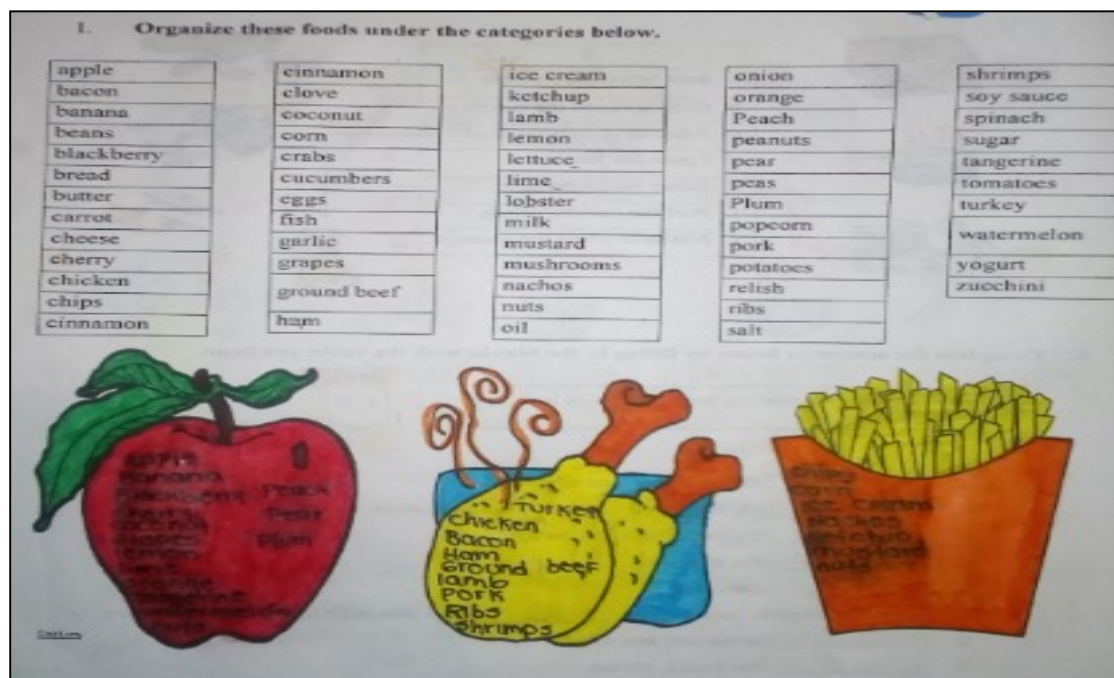 1. Organize these foods under the categories below.
apple
bacon
banana
beans
blackberry
bread
butter
carrot
cheese
cherry
chicken
chips
cinnamon
cinnamon
clove
coconut
corn
crabs
cucumbers
eggs
fish
garlic
grapes
ground beef
ham
ice cream
ketchup
lamb
lemon
lettuce
lime
lobster
milk
mustard
mushrooms
nachos
nuts
oil
onion
orange
Peach
peanuts
pear
peas
Plum
popcorn
pork
potatoes
relish
ribs
salt
shrimps
soy sauce
spinach
sugar
tangerine
tomatoes
turkey
watermelon
yogurt
zucchini
Apple
Banana
Blackberry Peach
Cherry Pear
Coconut Plum
Grapes
Lemon
Lime
Orange
Tangerine
Watermelon
Turkey
Chicken
Bacon
Ham
Ground beef
lamb
Pork
Ribs
Shrimps
Chips
Corn
Ice cream
Nachos
Ketchup
Mustard
nuts